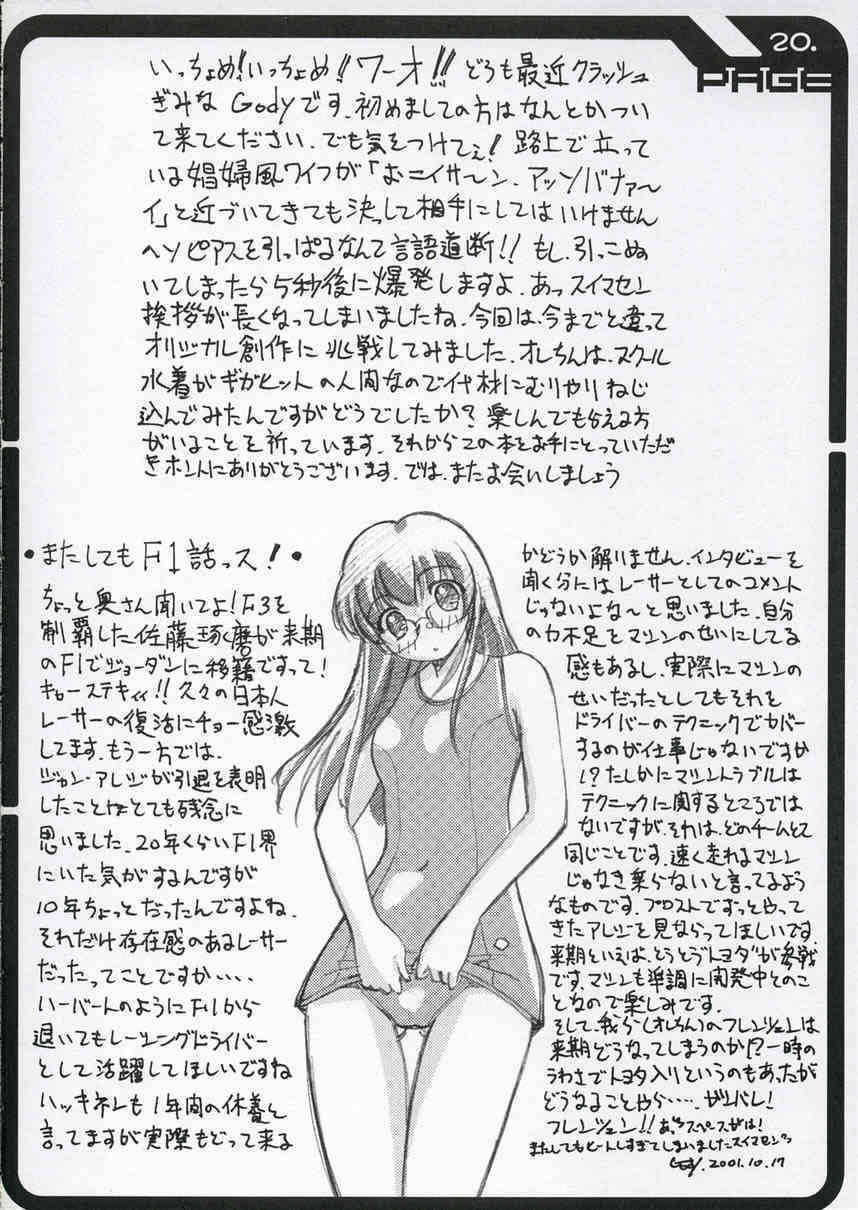 20.
PAGE
いっちょめ!いっちょめ!!ワーオ!!!どうも最近クラッシュ
ぎみなGodyです.初めましての方はなんとかつい
て来てください.でも気をつけてぇ!路上で立って
いる娼婦風ワイフが「おニイサ〜ン.アッソバナァ〜
イ」と近づいてきても決っして相手にしてはいけません
ヘソピアスを引っぱるなんて言語道断!!もし.引っこぬ
いてしまったら5秒後に爆発しますよ.あっスイマセン
挨拶が長くなってしまいましたね.今回は.今までと違って
オリジナル創作に挑戦してみました.オレちんは.スクール
水着がギガヒットの人間なので代材にむりやりねじ
込んでみたんですがどうでしたか?楽しんでもらえる方
がいることを祈っています.それからこの本をお手にとっていただ
きホントにありがとうございます.では.またお会いしましょう
•またしてもF1話っス!•
ちょっと奥さん聞いてよ!F3を
制覇した佐藤琢磨が来期
のF1でジョーダンに移籍ですって!
キャーステキィィ!!久々の日本人
レーサーの復活にチョー感激
してます.もう一方では.
ジャン・アレジが引退を表明
したことがとても残念に
思いました.20年くらいF1界
にいた気がするんですが
10年ちょっとだったんですよね.
それだけ存在感のあるレーサー
だったってことですか・・・・
ハーバートのようにF1から
退いてもレーシングドライバー
として活躍してほしいですね
ハッキネンも1年間の休養と
言ってますが実際もどって来る
かどうか解りません.インタビューを
聞く分にはレーサーとしてのコメント
じゃないよな〜と思いました.自分
の力不足をマシンのせいにしてる
感もあるし.実際にマシンの
せいだったとしてもそれを
ドライバーのテクニックでカバー
するのが仕事じゃないですか
!?たしかにマシントラブルは
テクニックに関するところでは
ないですが.それは.どのチームとて
同じことです.速く走れるマシン
じゃなき乗らないと言ってるよう
なものです.プロストでずっとやって
きたアレジを見ならってほしいです.
来期といえば.とうとうトヨタが参戦
です.マシンも準調に開発中とのこ
となので楽しみです.
そして.我ら(オレちん)のフレンツェンは
来期どうなってしまうのか!?一時の
うわさでトヨタ入りというのもあったが
どうなることやら・・・・.ガンバレ!
フレンツェン!!あっスペースがは!
またしてもヒートしすぎてしまいましたスイマセン
Gody.2001.10.17